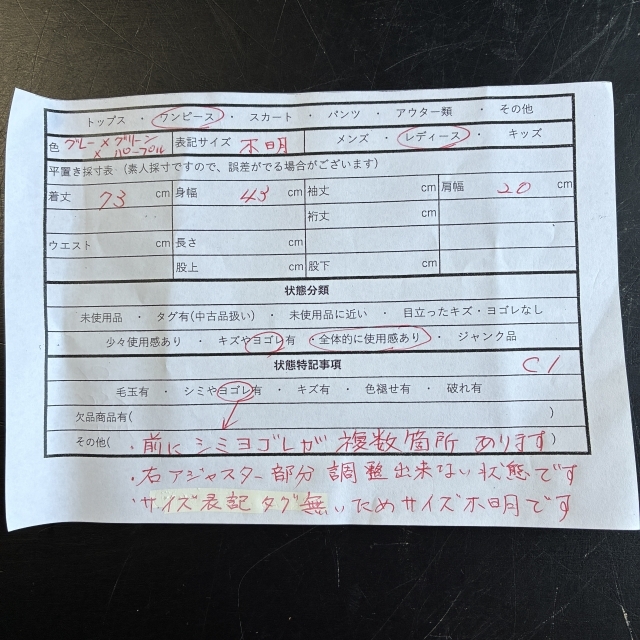 トップス ・ ワンピース ・ スカート ・ パンツ ・ アウター類 ・ その他
色 グレー×グリーン×パープル 表記サイズ 不明 メンズ ・ レディース ・ キッズ
平置き採寸表（素人採寸ですので、誤差がでる場合がございます）
着丈 73 cm 身幅 43 cm 袖丈 cm 肩幅 20 cm
裄丈 cm
ウエスト cm 長さ cm
股上 cm 股下 cm
状態分類
未使用品 ・ タグ有(中古品扱い) ・ 未使用品に近い ・ 目立ったキズ・ヨゴレなし
少々使用感あり ・ キズやヨゴレ有 ・ 全体的に使用感あり ・ ジャンク品
状態特記事項 C1
毛玉有 ・ シミやヨゴレ有 ・ キズ有 ・ 色褪せ有 ・ 破れ有
欠品商品有( )
その他( ・前にシミヨゴレが複数箇所あります )
・右アジャスター部分調整出来ない状態です
・サイズ表記タグ無いためサイズ不明です